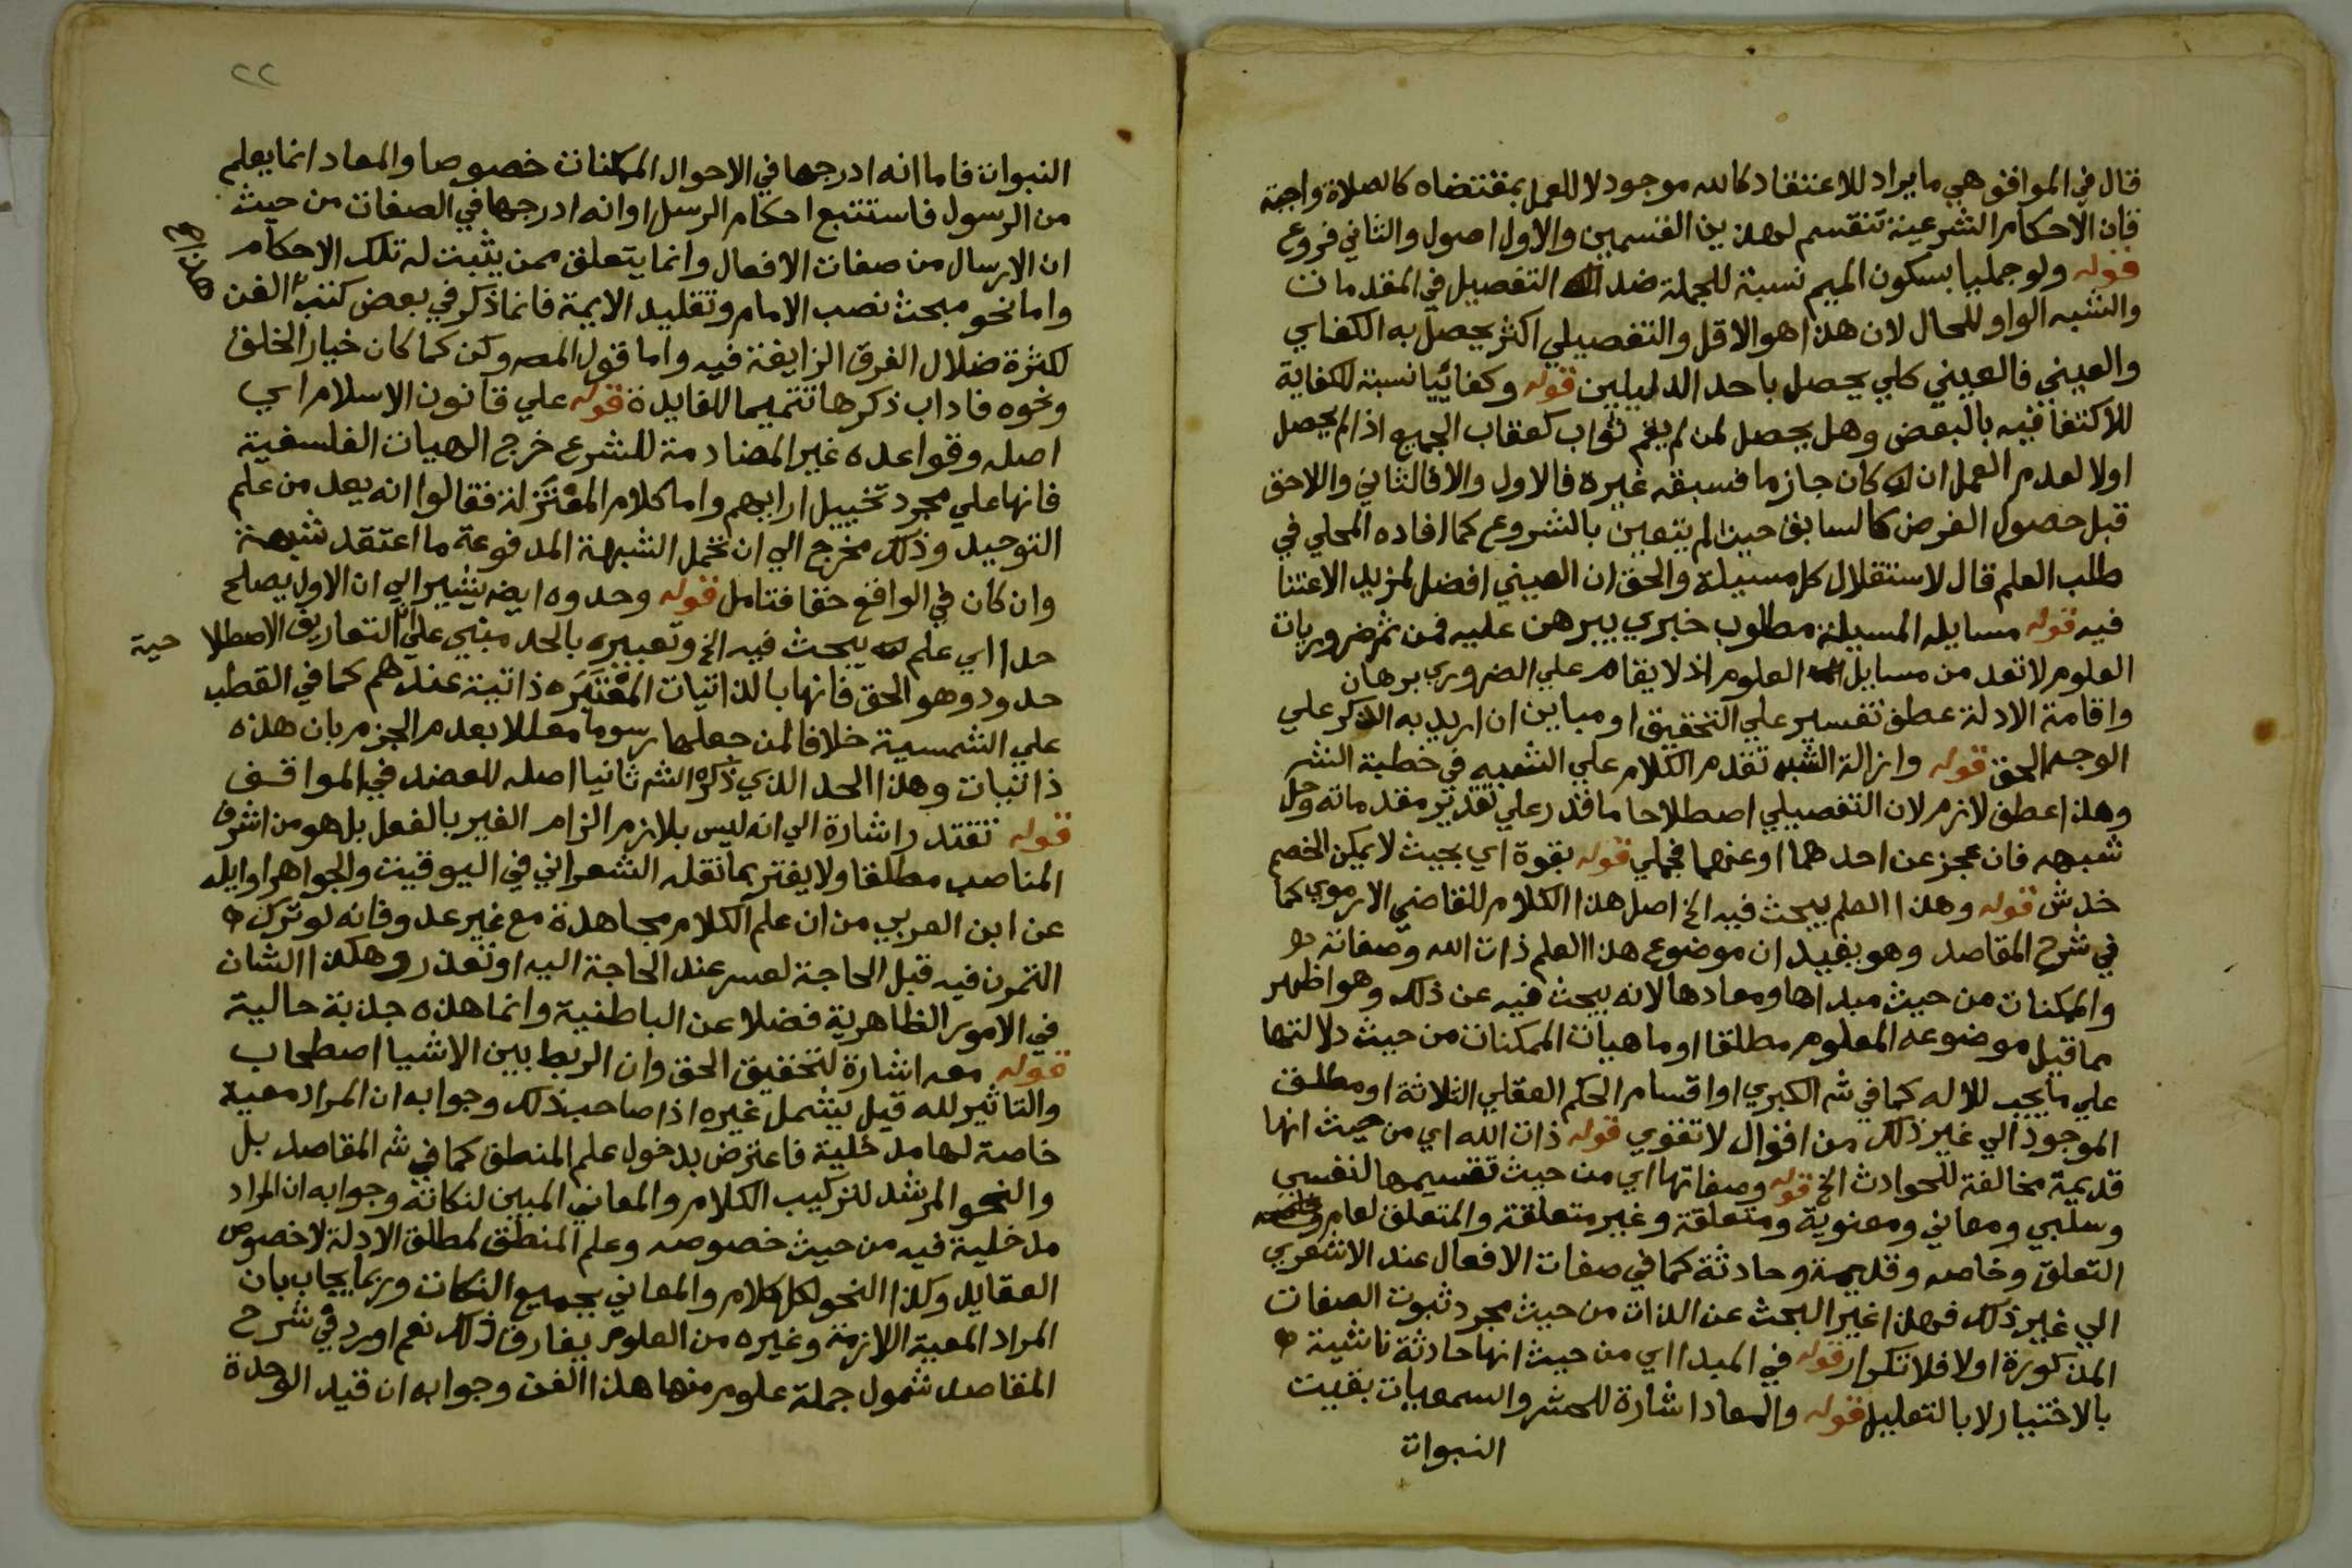 قال في المواقف هي ما يراد للاعتقاد كالله موجود لا للعمل بمقتضاه كالصلاة واجبة
فان الاحكام الشرعية تنقسم لهذين القسمين والاول اصول والثاني فروع
قوله ولو جمليا بسكون الميم نسبة للجملة ضد التفصيل في المقدمات
والشبه الواو للحال لان هذا هو الاقل والتفصيلي اكثر يحصل به الكفاي
والعيني فالعيني كلي يحصل باحد الدليلين قوله وكفائيا نسبة للكفاية
للاكتفا فيه بالبعض وهل يحصل لمن لم يقم ثواب كعقاب الجميع اذا لم يحصل
اولا لعدم العمل ان كان جازما فسبقه غيره فالاول والا فالثاني واللاحق
قبل حصول الفرض كالسابق حيث لم يتعين بالشروع كما افاده المحلي في
طلب العلم قال لاستقلال كل مسيلة والحق ان العيني افضل لمزيد الاعتنا
فيه قوله مسايله المسيلة مطلوب خبري يبرهن عليه فمن ثم ضروريات
العلوم لا تعد من مسايل العلوم اذ لا يقام علي الضروري برهان
واقامة الادلة عطف تفسير علي التحقيق او مباين ان اريد به الذكر علي
الوجه الحق قوله وازالة الشبه تقدم الكلام علي الشبه في خطبة الشر
وهذا عطف لازم لان التفصيلي اصطلاحا ما قدر علي تقدير مقدماته وحل
شبهه فان عجز عن احدهما او عنهما فجملي قوله بقوة اي بحيث لا يمكن الخصم
خدش قوله وهذا العلم يبحث فيه الخ اصل هذا الكلام للقاضي الارموي كما
في شرح المقاصد وهو يفيد ان موضوع هذا العلم ذات الله وصفاته
والممكنات من حيث مبداها ومعادها لانه يبحث فيه عن ذلك وهو اظهر
مما قيل موضوعه المعلوم مطلقا او ماهيات الممكنات من حيث دلالتها
علي ما يجب للاله كما في شر الكبري او اقسام الحكم العقلي الثلاثة او مطلق
الموجود الي غير ذلك من اقوال لا تقوي قوله ذات الله اي من حيث انها
قديمة مخالفة للحوادث الخ قوله وصفاتها اي من حيث تقسيمها لنفسي
وسلبي ومعاني ومعنوية ومتعلقة وغير متعلقة والمتعلق لعام
التعلق وخاصه وقديمة وحادثة كما في صفات الافعال عند الاشعري
الي غير ذلك فهذا غير البحث عن الذات من حيث مجرد ثبوت الصفات
المذكورة اولا فلا تكرار قوله في المبدا اي من حيث انها حادثة ناشئة
بالاختيار لا بالتعليل قوله والمعاد اشارة للحشر والسمعيات بقيت
النبوات
٢٢
النبوات فاما انه ادرجها في الاحوال الممكنات خصوصا والمعاد انما يعلم
من الرسول فاستتبع احكام الرسل او انه ادرجها في الصفات من حيث
ان الارسال من صفات الافعال وانما يتعلق ممن يثبت له تلك الاحكام
واما نحو مبحث نصب الامام وتقليد الايمة فانما ذكر في بعض كتب الفن
لكثرة ضلال الفرق الزايغة فيه واما قول المصه وكن كما كان خيار الخلق
ونحوه فاداب ذكرها تتميما للفايدة قوله علي قانون الاسلام اي
اصله وقواعده غير المصادمة للشرع خرج الهيات الفلسفية
فانها علي مجرد تخييل ارايهم واما كلام المعتزلة فقالوا انه يعد من علم
التوحيد وذلك مخرج الي ان تحمل الشبهة المدفوعة ما اعتقد شبهة
وان كان في الواقع حقا فتامل قوله وحدوه ايضه يشير الي ان الاول يصلح
حدا اي علم يبحث فيه الخ وتعبيره بالحد مبني علي ان التعاريف الاصطلا حية
حدود وهو الحق فانها بالذاتيات المعتبره ذاتية عندهم كما في القطب
علي الشمسية خلافا لمن جعلها رسوما معللا بعدم الجزم بان هذه
ذاتيات وهذا الحد الذي ذكره الشر ثانيا اصله للعضد في المواقف
قوله تقتدر اشارة الي انه ليس بلازم الزام الغير بالفعل بل هو من اشرف
المناصب مطلقا ولا يغتر بما نقله الشعراني في اليوقيت والجواهر اوايله
عن ابن العربي من ان علم الكلام مجاهدة مع غير عدو فانه لو ترك
التمرن فيه قبل الحاجة لعسر عند الحاجة اليه او تعذر وهكذا الشان
في الامور الظاهرية فضلا عن الباطنية وانما هذه جذبة حالية
قوله معه اشارة لتحقيق الحق وان الربط بين الاشيا اصطحاب
والتاثير لله قيل يشمل غيره اذا صاحب ذلك وجوابه ان المراد معية
خاصة لها مدخلية فاعترض بدخول علم المنطق كما في شر المقاصد بل
والنحو المرشد لتركيب الكلام والمعاني المبين لنكاته وجوابه ان المراد
مدخلية فيه من حيث خصوصه وعلم المنطق لمطلق الادلة لا خصوص
العقايد وكذا النحو لكل كلام والمعاني بجميع النكات وربما يجاب بان
المراد المعية اللازمة وغيره من العلوم يفارق ذلك نعم اورد في شرح
المقاصد شمول جملة علوم منها هذا الفن وجوابه ان قيد الوحدة